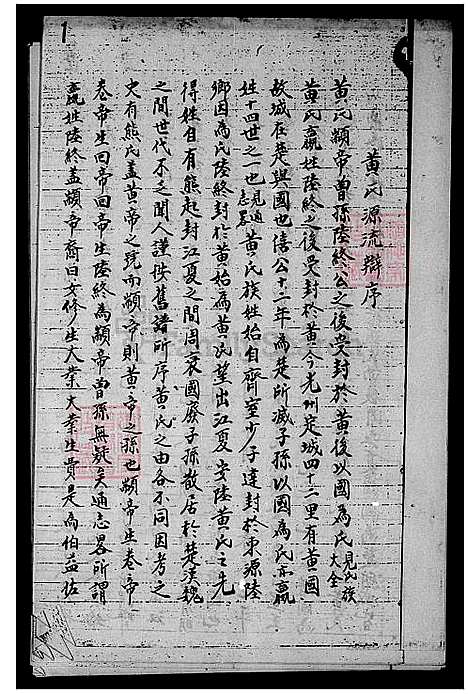 1
黄氏源流辯序
黄氏顓帝曾孫陸終公之後受封於黄後以國為氏見氏族大全
黄氏嬴姓陸終之後受封於黄今光州定城四十二里有黄國
故城在楚與國也僖公十二年為楚所滅子孫以國為氏亦嬴
姓十四世之一也見通志畧黄氏族姓始自齊室少子達封於東源陸
鄉因為氏陸終封於黄始為黄氏望出江夏安陸黄氏之先
得姓自有熊起封江夏之間周衰國廢子孫散居於楚漢魏
之間世代不乏聞人謹按舊譜所序黄氏之由各不同因考之
史有熊氏盖黄帝之號而顓帝則黄帝之孫也顓帝生卷帝
卷帝生回帝回帝生陸終為顓帝曾孫無疑矣通志畧所謂
嬴姓陸終盖顓帝裔曰女修生大業大業生費是為伯益佐